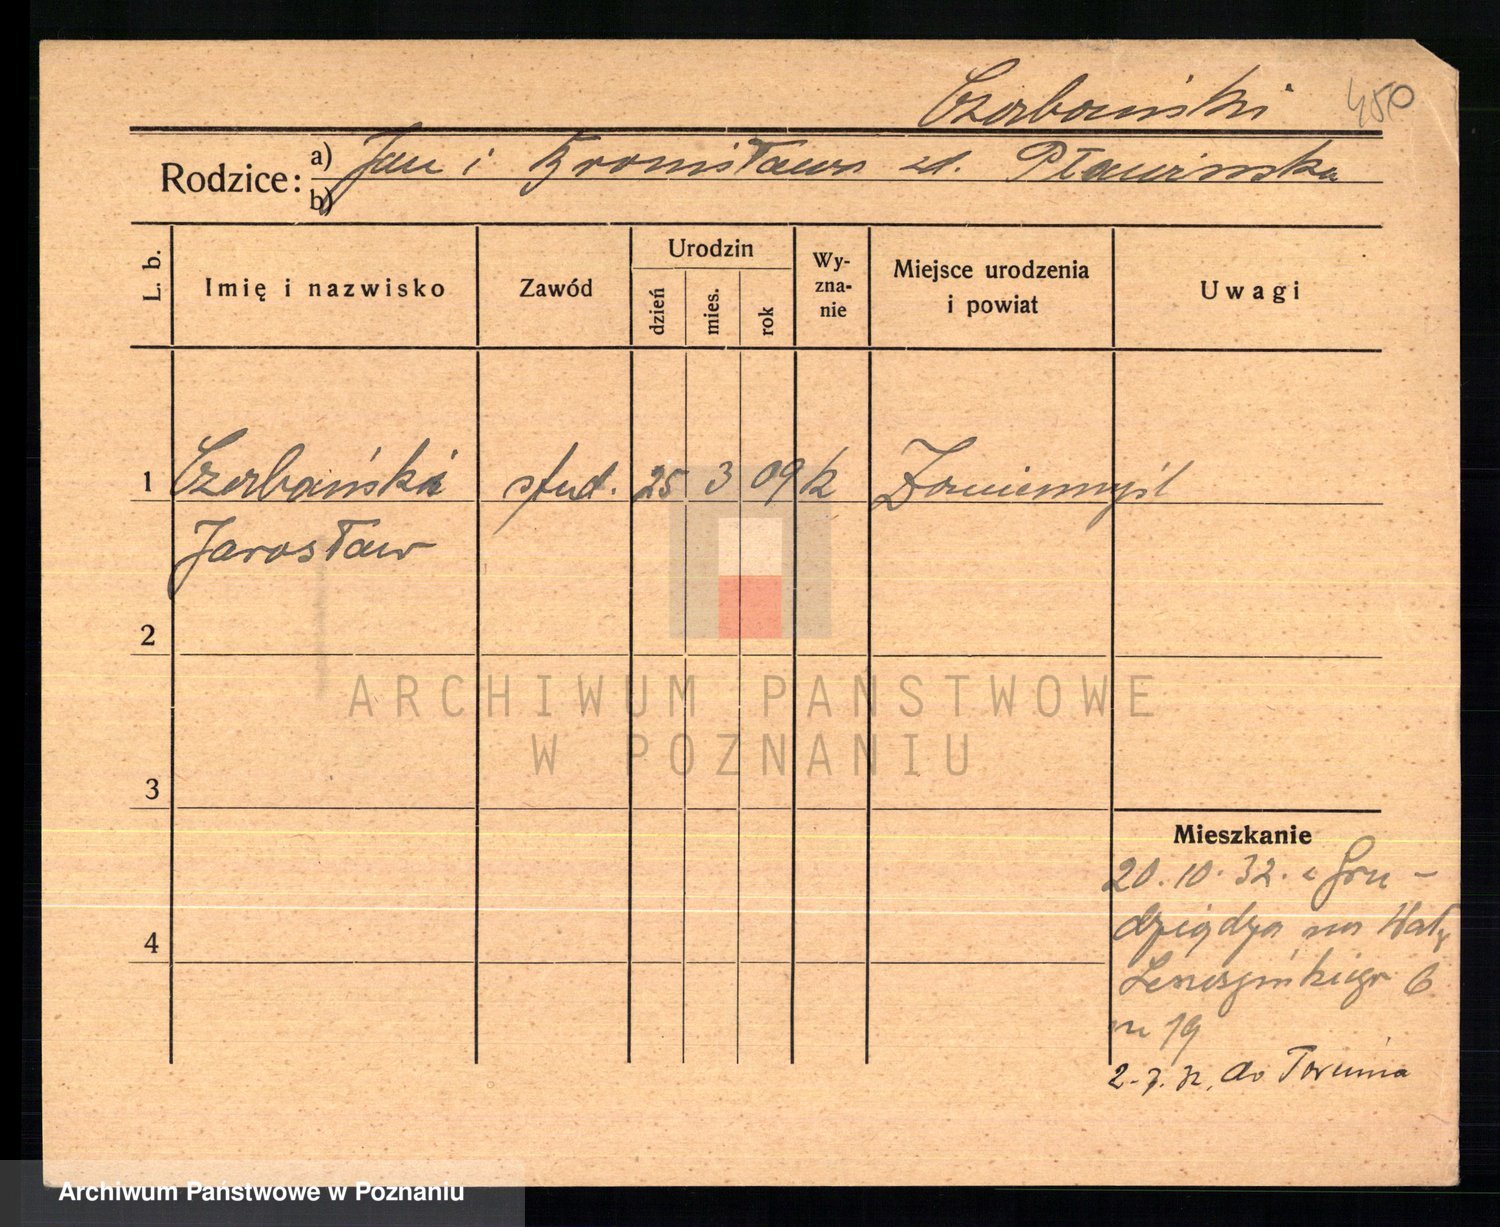 Czerbański 450
Rodzice: a) Jan i Bronisława zd. Pławińska
b)
L. b. Imię i nazwisko Zawód Urodzin dzień mies. rok Wy-zna-nie Miejsce urodzenia i powiat Uwagi
1 Czerbański stud. 25 3 09 k Zaniemyśl
Jarosław
2
3
4
Mieszkanie
20.10.32. z Gru-
dziądza na Wały
Leszczyńskiego 6
m 19
do Torunia
ARCHIWUM PAŃSTWOWE
W POZNANIU
Archiwum Państwowe w Poznaniu